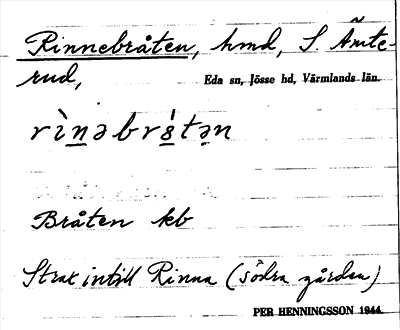 Rinnebråten, hmd, S. Ämte-
rud,
Eda sn, Jösse hd, Värmlands län.
rìnəbr8́tən
Bråten kb
Strax intill Rinna (södra gården)
PER HENNINGSSON 1944.